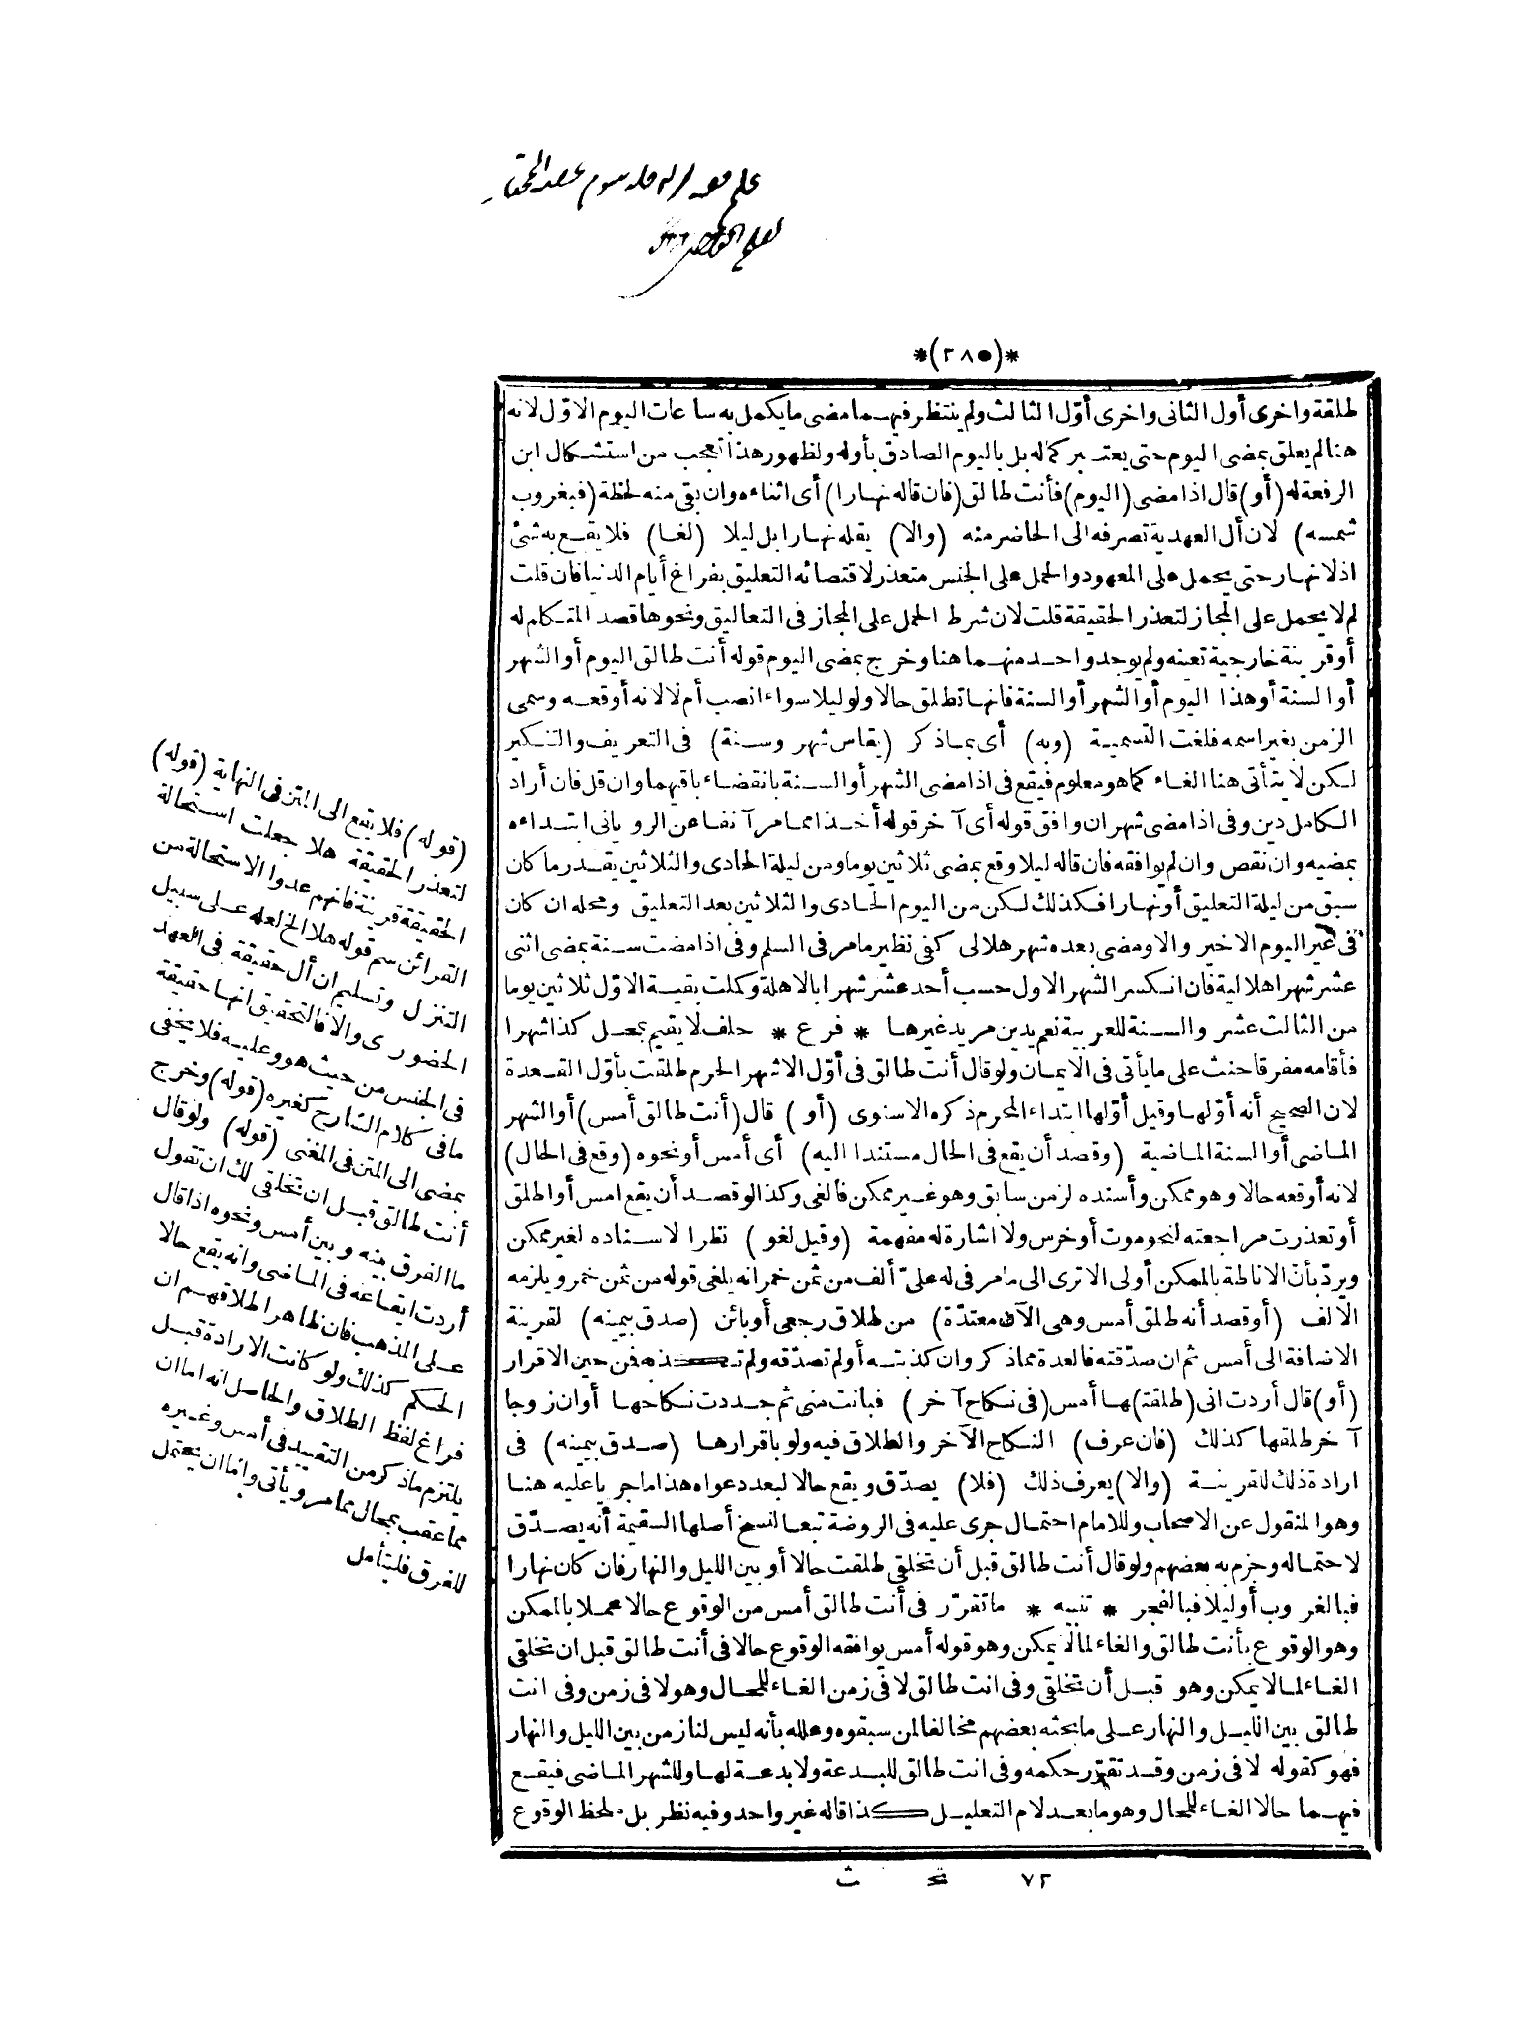 *(٢٨٥)*
طلقة واخرى أول الثانى واخرى أوّل الثالث ولم ينتظر فيهما مضى ما يكمل به ساعات اليوم الاوّل لانه
هنا لم يعلق بمضى اليوم حتى يعتبر كماله بل باليوم الصادق بأوله ولظهور هذا تعجب من استشكال ابن
الرفعة له (أو) قال اذا مضى (اليوم) فأنت طالق (فان قاله نهارا) أى اثناءه وان بقى منه لحظة (فبغروب
شمسه) لان أل العهدية تصرفه الى الحاضر منه (والا) يقله نهارا بل ليلا (لغا) فلا يقع به شئ
اذ لا نهار حتى يحمل على المعهود والحمل على الجنس متعذر لاقتضائه التعليق بفراغ أيام الدنيا فان قلت
لم لا يحمل على المجاز لتعذر الحقيقة قلت لان شرط الحمل على المجاز فى التعاليق ونحوها قصد المتكلم له
أو قرينة خارجية تعينه ولم يوجد واحد منهما هنا وخرج بمضى اليوم قوله أنت طالق اليوم أو الشهر
أو السنة أو هذا اليوم أو الشهر أو السنة فانها تطلق حالا ولو ليلا سواء انصب أم لا لانه أوقعه وسمى
الزمن بغير اسمه فلغت التسمية (وبه) أى بما ذكر (يقاس شهر وسنة) فى التعريف والتنكير
لكن لا يتأتى هنا الغاء كما هو معلوم فيقع فى اذا مضى الشهر أو السنة بانقضاء باقيهما وان قل فان أراد
الكامل دين وفى اذا مضى شهر ان وافق قوله أى آخر قوله أخذا مما مر آنفا عن الرويانى ابتداءه
بمضيه وان نقص وان لم يوافقه فان قاله ليلا وقع بمضى ثلاثين يوما ومن ليلة الحادى والثلاثين بقدر ما كان
سبق من ليلة التعليق أو نهارا فكذلك لكن من اليوم الحادى والثلاثين بعد التعليق ومحله ان كان
فى غير اليوم الاخير والا ومضى بعده شهر هلالى كفى نظير ما مر فى السلم وفى اذا مضت سنة بمضى اثنى
عشر شهرا هلالية فان انكسر الشهر الاول حسب أحد عشر شهرا بالاهلة وكملت بقية الاوّل ثلاثين يوما
من الثالث عشر والسنة للعربية نعم يدين مريد غيرها * فرع * حلف لا يقيم بمحل كذا شهرا
فأقامه مفرقا حنث على ما يأتى فى الايمان ولو قال أنت طالق فى أوّل الاشهر الحرم طلقت بأوّل القعدة
لان الصحيح أنه أوّلها وقيل أوّلها ابتداء المحرم ذكره الاسنوى (أو) قال (أنت طالق أمس) أو الشهر
الماضى أو السنة الماضية (وقصد أن يقع فى الحال مستندا اليه) أى أمس أو نحوه (وقع فى الحال)
لانه أوقعه حالا وهو ممكن وأسنده لزمن سابق وهو غير ممكن فالغى وكذا لو قصد أن يقع امس أو اطلق
أو تعذرت مراجعته لنحو موت أو خرس ولا اشارة له مفهمة (وقيل لغو) نظرا لاسناده لغير ممكن
ويردّ بأنّ الاناطة بالممكن أولى الا ترى الى ما مر فى له علىّ ألف من ثمن خمر انه يلغى قوله من ثمن خمر ويلزمه
الالف (أو قصد أنه طلق أمس وهى الآن معتدّة) من طلاق رجعى أو بائن (صدق بيمينه) لقرينة
الاضافة الى أمس ثم ان صدّقته فالعدة مما ذكر وان كذبته أو لم تصدّقه ولم تكذبه فمن حين الاقرار
(أو) قال أردت انى (طلقتها) أمس (فى نكاح آخر) فبانت منى ثم جددت نكاحها أو ان زوجا
آخر طلقها كذلك (فان عرف) النكاح الآخر والطلاق فيه ولو باقرارها (صدق بيمينه) فى
ارادة ذلك للقرينة (والا) يعرف ذلك (فلا) يصدّق ويقع حالا لبعد دعواه هذا ما جريا عليه هنا
وهو المنقول عن الاصحاب وللامام احتمال جرى عليه فى الروضة تبعا لنسخ أصلها السقيمة أنه يصدّق
لاحتماله وجزم به بعضهم ولو قال أنت طالق قبل أن تخلقى طلقت حالا أو بين الليل والنهار فان كان نهارا
فبالغروب أو ليلا فبالفجر * تنبيه * ما تقرّر فى أنت طالق أمس من الوقوع حالا عملا بالممكن
وهو الوقوع بأنت طالق والغاء لما لا يمكن وهو قوله أمس يوافقه الوقوع حالا فى أنت طالق قبل ان تخلقى
الغاء لما لا يمكن وهو قبل أن تخلقى وفى انت طالق لا فى زمن الغاء للمحال وهو لا فى زمن وفى انت
طالق بين الليل والنهار على ما بحثه بعضهم مخالفا لمن سبقوه وعلله بأنه ليس لنا زمن بين الليل والنهار
فهو كقوله لا فى زمن وقد تقرّر حكمه وفى انت طالق للبدعة ولا بدعة لها وللشهر الماضى فيقع
فيهما حالا الغاء للمحال وهو ما بعد لام التعليل كذا قاله غير واحد وفيه نظر بل ملحظ الوقوع
٧٢ ث
(قوله) فلا يقع الى المتن فى النهاية (قوله)
لتعذر الحقيقة هلا جعلت استحالة
الحقيقة قرينة فانهم عدوا الاستحالة من
القرائن سم قوله هلا الخ لعله على سبيل
التنزل وتسليم ان أل حقيقة فى العهد
الحضورى والا فالتحقيق انها حقيقة
فى الجنس من حيث هو وعليه فلا يخفى
ما فى كلام الشارح كغيره (قوله) وخرج
بمضى الى المتن فى المغنى (قوله) ولو قال
أنت طالق قبل ان تخلقى لك ان تقول
ما الفرق بينه وبين أمس ونحوه اذا قال
أردت ايقاعه فى الماضى وانه يقع حالا
على المذهب فان ظاهر اطلاقهم ان
الحكم كذلك ولو كانت الارادة قبل
فراغ لفظ الطلاق والحاصل انه اما ان
يلتزم ما ذكر من التقييد فى أمس وغيره
مما عقب بمحال مما مر ويأتى واما ان يتمحل
للفرق فليتأمل